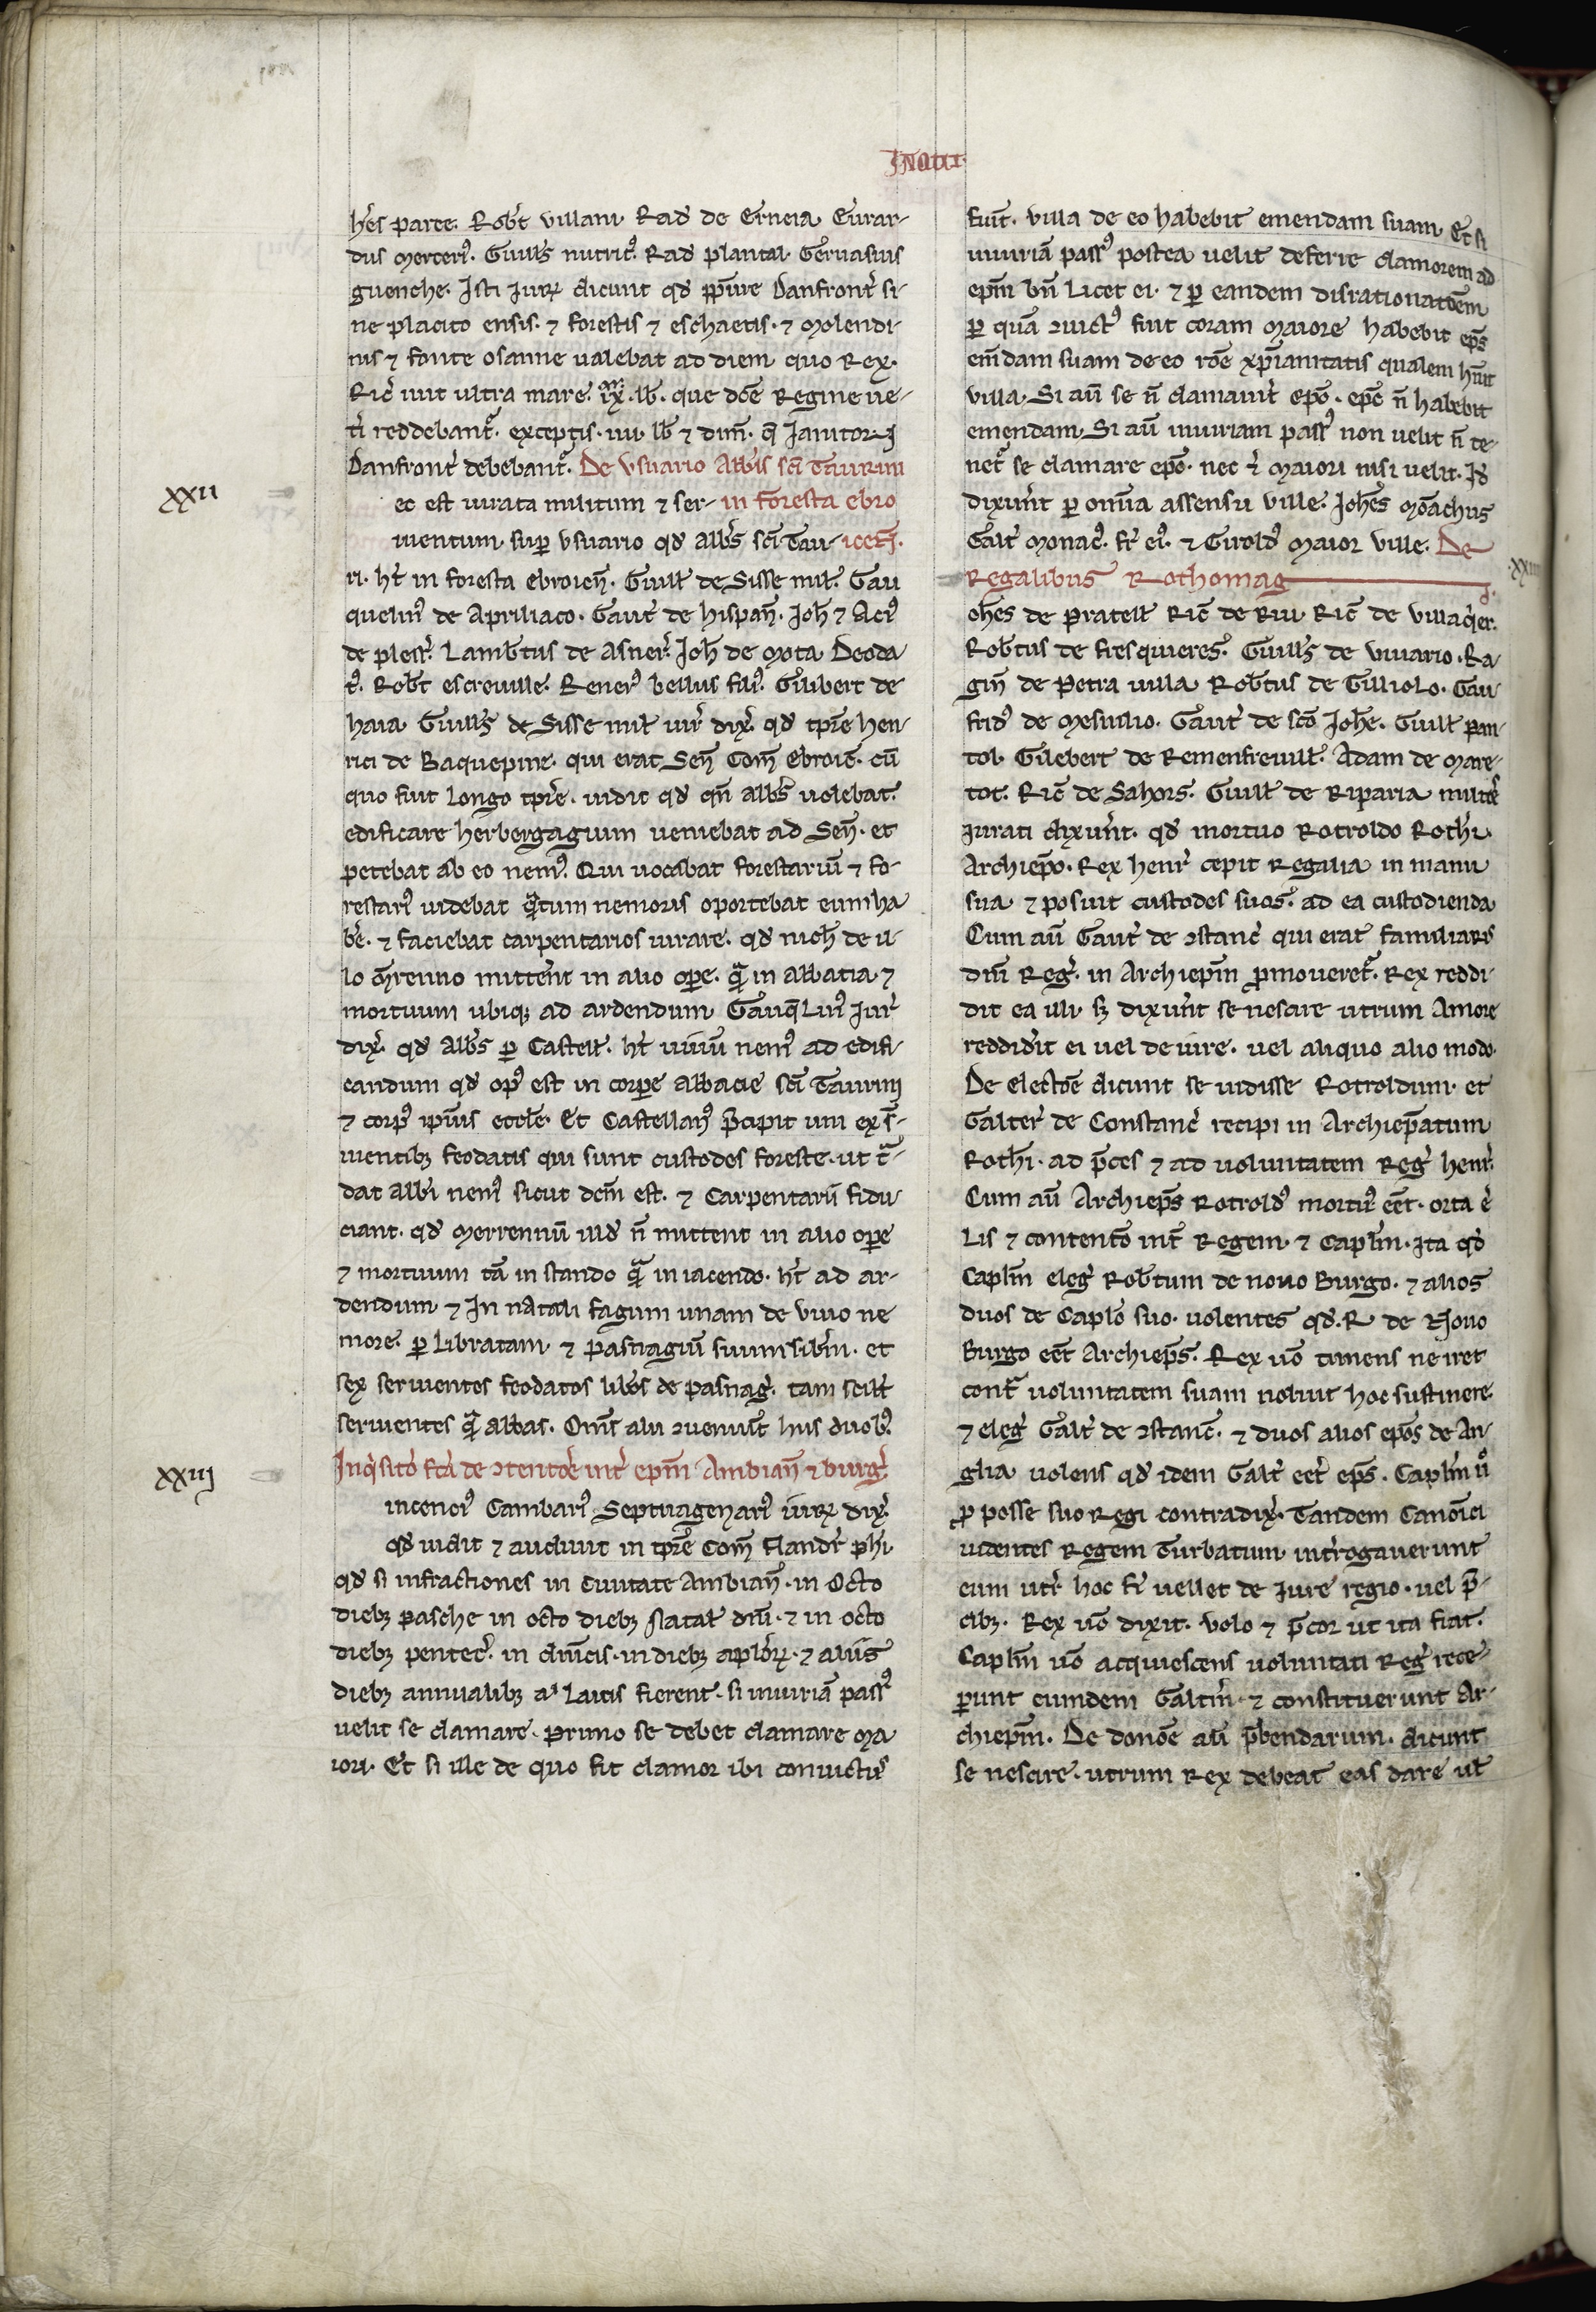 Jnqui.
hẽs parte. Rob̃t villani. Rad̃ de Erneia. Eurar-
dus Mercerꝰ. Guill̃s nutricꝰ. Rad̃ plantai. Geruasius
guenche. Isti Jurꝝ dicunt qd̃ pp̃iture Danfront̃ si-
ne placito ensis. ⁊ forestis ⁊ eschaetis. ⁊ Molendi-
nis ⁊ fonte osanne ualebat ad diem quo Rex.
Ric̃ iuit ultra mare. ix. lb̃. que dc̃e Regine ue-
t̃i reddebant᷑. exceptis. iiii. lb̃ ⁊ dim̃. q̃ Janitori
Danfront̃ debebant᷑. De vsuario Abb̃is sc̃i Taurini
ec est iurata militum ⁊ ser- in foresta ebro
uientum. sup̃ vsuario qd̃ abb̃s sc̃i Tau- icen̄.
ri. ht̃ in foresta ebroicen̄. Guill̃ de Sisse mil̃. Gau
quelinꝰ de Apriliaco. Gaut̃ de hispan̄. Joh̃ ⁊ Acꝰ
de pless̃. Lamb̃tus de Asner̃. Joh̃ de Mota. Deoda
tꝰ. Rob̃t escreuille. Renerꝰ bellus filiꝰ. Gilibert de
haia. Guill̃s de Sisse mil̃ iur̃ dix̃. qd̃ tp̃re hen-
rici de Baquepuire. qui erat Sen̄ Com̃ Ebroic̃. cũ
quo fuit longo tp̃re. uidit qd̃ qn̄ abb̃s uolebat.
edificare herbergagium ueniebat ad Sen̄. et
petebat ab eo nemꝰ. Qui uocabat forestariũ ⁊ fo-
restariꝰ uidebat q̃tum nemoris oportebat eum ha
b̃e. ⁊ faciebat carpentarios iurare. qd̃ nich̃ de il-
lo m̃renno mittẽnt in alio opẽ. q̃ in abbatia. ⁊
mortuum ubiqꝫ ad ardendum. Gauq̃linꝰ Jur̃
dix̃. qd̃ abb̃s ꝑ Castell̃. ht̃ uiuũ nemꝰ ad edifi-
candum qd̃ opꝰ est in corpe abbacie sc̃i Taurini
⁊ corpꝰ ip̃ius eccl̃e. Et Castellanꝰ p̃cipit uni ex s̃-
uientibꝫ feodatis qui sunt custodes foreste. ut t̃-
dat abb̃i nemꝰ sicut dc̃m est. ⁊ Carpentarii fidu-
ciant. qd̃ Merrennũ illd̃ n̄ mittent in alio opẽ
⁊ mortuum tã in stando q̃ in iacendo. ht̃ ad ar-
dendum ⁊ In natali fagum unam de viuo ne
more. ꝑ libratam. ⁊ pasnagiũ suum lib̃m. et
sex seruientes feodatos lib̃os de pasnag̃. tam scil̃t
seruientes q̃ abbas. Om̃s alii ↄueniũt hiis duobꝰ.
Inq̃sit̃o fc̃a de ↄtent̃oe int̃ ep̃m Ambian̄ ⁊ burg̃.
incenciꝰ Cambariꝰ. Septuagenariꝰ iurꝝ dix̃.
qd̃ uidit ⁊ audiuit in tp̃re Com̃ flandr̃ ph̃i.
qd̃ si infractiones in Ciuitate Ambian̄. in Octo
diebꝫ pasche in octo diebꝫ Natal̃ dñi. ⁊ in octo
diebꝫ pentec̃. in dñicis. in diebꝫ apl̃orꝝ. ⁊ aliis
diebꝫ annualibꝫ a laicis fierent. si iniuriã passꝰ
uelit se clamare. primo se debet clamare Ma
iori. Et si ille de quo fit clamor ibi conuictus
fuit̃. villa de eo habebit emendam suam. Et si
iniuriã passꝰ postea uelit deferre clamorem ad
ep̃m bñ Licet ei. ⁊ ꝑ eandem disrationat̃oem
ꝑ quã ↄuictꝰ fuit coram Maiore habebit ep̃s
em̃dam suam de eo rõe xp̃ianitatis qualem hũit
villa. Si aũ se n̄ clamauit̃ ep̃o. ep̃c n̄ habebit
emendam. Si aũ iniuriam passꝰ non uelit n̄ te-
net᷑ se clamare ep̃o. nec ⁊ maiori nisi uelit. Id̃
dixer̃nt ꝑ omniũ assensu ville. Joh̃es Mõachus
Galt̃ Monacꝰ. fr̃ eiꝰ. ⁊ Giroldꝰ Maior ville. De
Regalibus Rothomag̃
oh̃es de pratell̃. Ric̃ de Riu. Ric̃ de villaq̃er.
Rob̃tus de fresquieres. Guill̃s de viuario. Ra
gin̄ de petra uilla. Rob̃tus de Tilliolo. Gau
fridꝰ de Mesnilio. Gaut̃ de sc̃o Joh̃e. Guill̃ pan-
tol. Gilebert de Remenfreuill̃. Adam de Mare-
tot. Ric̃ de Sahors. Guill̃ de Riparia milites
Jurati dixer̃nt. qd̃ mortuo Rotroldo Roth̃.
Archiep̃o. Rex henr̃ cepit Regalia in manu
sua ⁊ posuit custodes suos. ad ea custodienda
Cum aũ Gaut̃ de ↄstanc̃ qui erat familiaris
dñi Reg̃. in Archiep̃m p̃moueret᷑. Rex reddi-
dit ea illi. sꝫ dixer̃nt se nescire utrum Amore
reddider̃it ei uel de iure. uel aliquo alio modo.
De elect̃oe dicunt se uidisse Rotroldum. et
Galter̃ de Constanc̃ recipi in Archiep̃atum
Roth̃. ad p̃ces ⁊ ad uoluntatem Reg̃ henr̃.
Cum aũ Archiep̃s Rotroldꝰ mortuꝰ eẽt. orta ẽ
Lis ⁊ content̃o int̃ Regem. ⁊ Capl̃m. ita qd̃
Capl̃m eleg̃ Rob̃tum de nouo Burgo. ⁊ alios
duos de Capl̃o suo. uolentes qd̃. R. de Nouo
Burgo eẽt Archiep̃s. Rex uõ timens ne iret
cont᷑ uoluntatem suam noluit hoc sustinere.
⁊ eleg̃ Galt̃ de ↄstanc̃. ⁊ duos alios ep̃os de An-
glia uolens qd̃ idem Galt̃ eẽt ep̃s. Capl̃m ũ
ꝓ posse suo Regi contradix̃. Tandem Canoĩci
uidentes Regem Turbatum. int̃rogauerunt
eum utr̃ hoc fi̾ vellet de Jure regio. uel p̃-
cibꝫ. Rex uõ dixit. volo ⁊ p̃cor ut ita fiat.
Capl̃m uõ acquiescens uoluntati Reg̃ rece-
ꝑunt eumdem Galt̃m. ⁊ constituerunt Ar-
chiep̃m. De donõe aũ p̃bendarum. dicunt
se nescire. utrum Rex debeat eas dare ul̃
xxii
xxiij